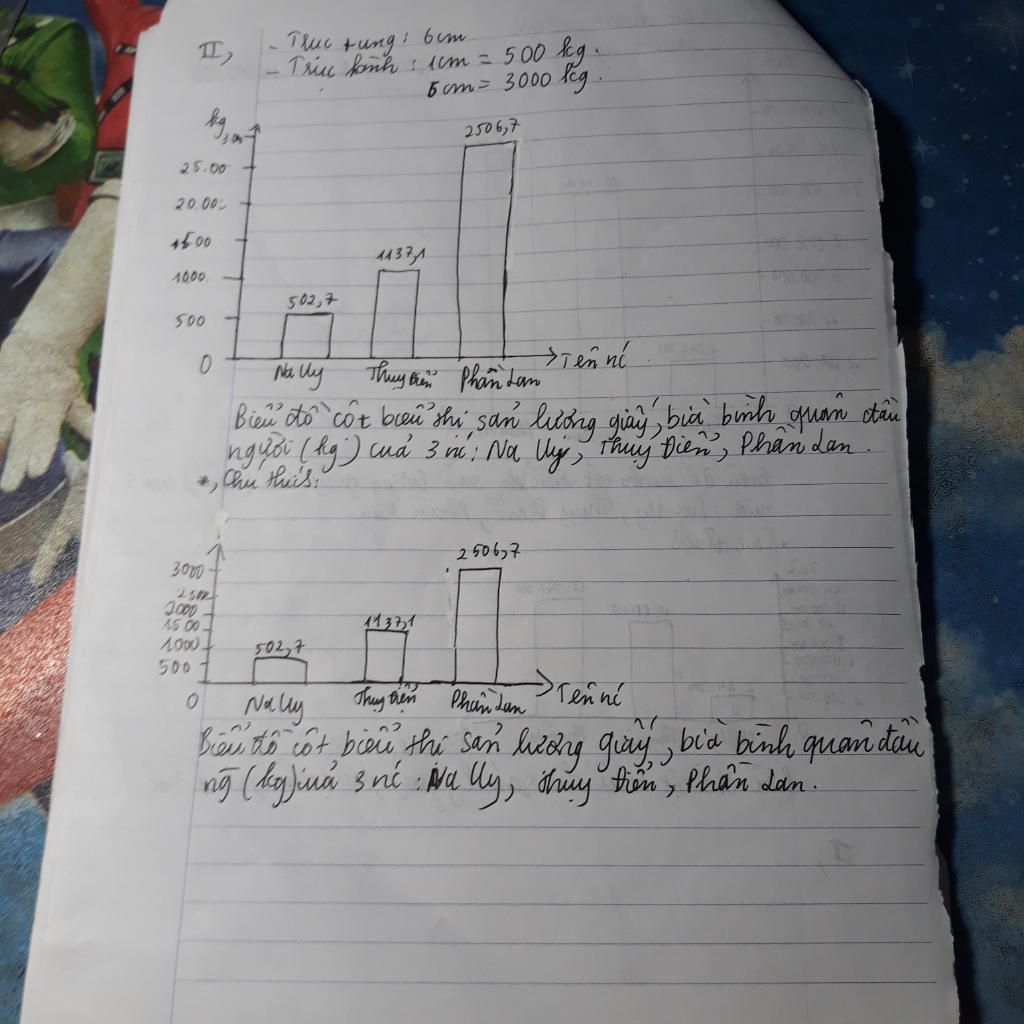 II,
- Trục tung: 6cm
- Trục hành: 1cm = 500 kg.
6cm = 3000 kg.
kg
25.00
20.00
1500
1000
500
0
502,7
1137,1
2506,7
Na Uy
Thụy Điển
Phần Lan
Tên nć
Biểu đồ cột biểu thị sản lượng giấy, bìa bình quân đầu
người (kg) của 3 nć: Na Uy, Thụy Điển, Phần Lan.
*, Chú thích:
3000
2500
2000
1500
1000
500
0
502,7
1137,1
2506,7
Na Uy
Thụy Điển
Phần Lan
Tên nć
Biểu đồ cột biểu thị sản lượng giấy, bìa bình quân đầu
ng̃ (kg) của 3 nć: Na Uy, Thụy Điển, Phần Lan.